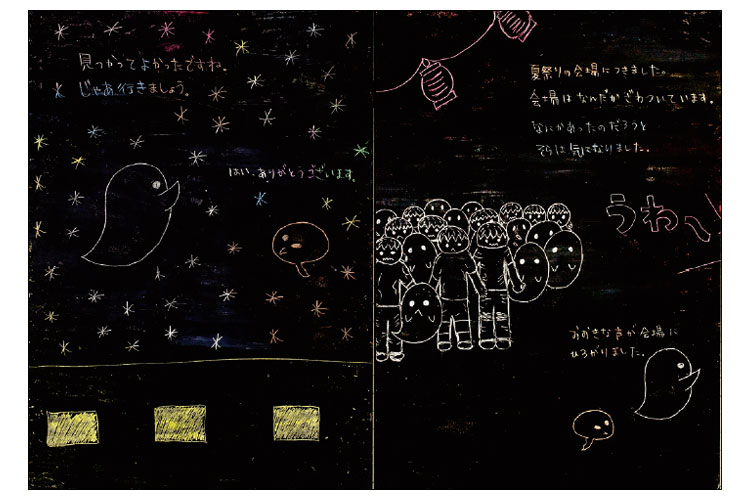 見つかってよかったですね。
じゃあ行きましょう。
はい、ありがとうございます。
夏祭りの会場につきました。
会場はなんだかざわついています。
なにかあったのだろうと
そらは気になりました。
うわ〜！
おおきな声が会場に
ひろがりました。